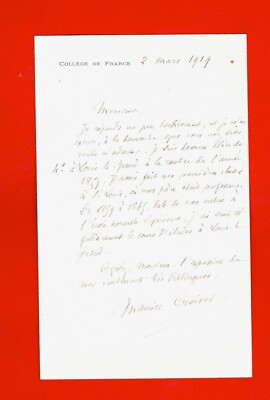 COLLÈGE DE FRANCE 2 mars 1919
Monsieur,
Je réponds un peu tardivement, et je m'en
excuse, à la demande que vous m'avez bien
voulu m'adresser. Je suis devenu élève de
4e à Louis le Grand à la rentrée de l'année
1859. J'avais fait mes premières classes
à St Louis, où mon père était professeur.
De 1859 à 1865, date de mon entrée à
l'école normale supérieure, j'ai suivi ré-
gulièrement le cours d'études à Louis-le-
Grand.
Agréez, monsieur, l'expression de
mes sentiments très distingués,
Maurice Croiset